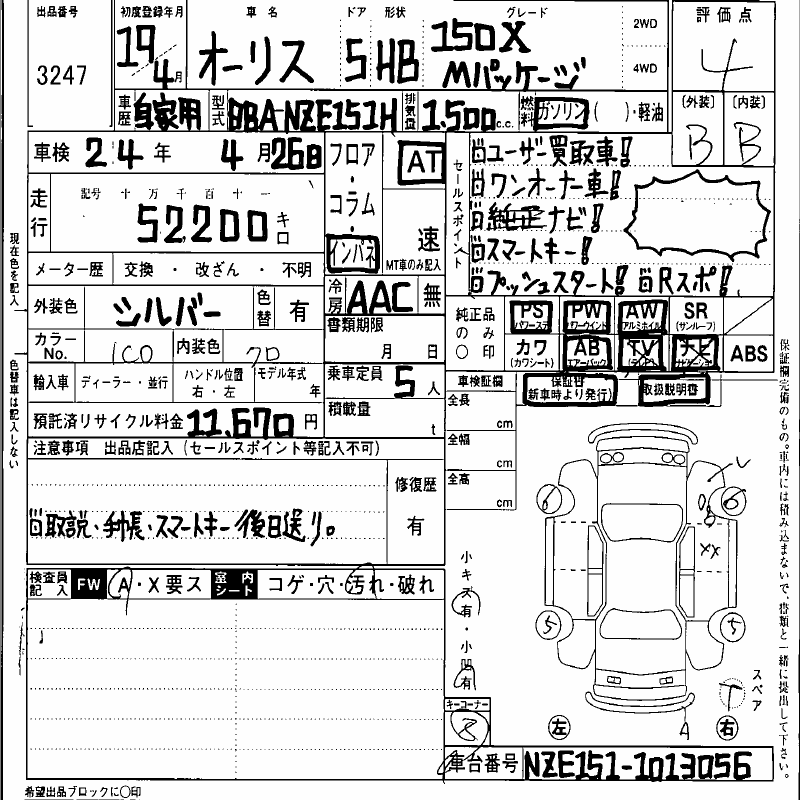 出品番号 初度登録年月 車名 ドア 形状 グレード 2WD 4WD 評価点
3247 19年 4月 オーリス 5 HB 150X Mパッケージ 4
車歴 自家用 型式 DBA-NZE151H 排気量 1.500c.c. 燃料 ガソリン( )・軽油 〔外装〕 B 〔内装〕 B
車検 24年 4月26日 フロア・コラム・インパネ AT 速 MT車のみ記入
走行 記号 十 万 千 百 十 一
52200 キロ
メーター歴 交換・改ざん・不明
セールスポイント
ユーザー買取車!
ワンオーナー車!
純正ナビ!
スマートキー!
プッシュスタート! Rスポ!
外装色 シルバー 色替 有 冷房 AAC 無
カラーNo. 1C0 内装色 クロ 書類期限 月 日
輸入車 ディーラー・並行 ハンドル位置 右・左 モデル年式 年 乗車定員 5人
預託済リサイクル料金 11,670円 積載量 t
純正品のみ〇印
PS パワーステ PW パワーウインド AW アルミホイル SR (サンルーフ)
カワ (カワシート) AB エアーバック TV ナビ ABS
車検証欄 保証書 (新車時より発行) 取扱説明書
全長 cm
全幅 cm
全高 cm
注意事項 出品店記入(セールスポイント等記入不可)
取説・手帳・スマートキー後日送り。
修復歴 有
検査員記入 FW A・X要ス 室内シート コゲ・穴・汚れ・破れ
小キズ有・小凹有
6 6
XX
5 5
スペア T
A
キーコーナー
左 右
車台番号 NZE151-1013056
希望出品ブロックに〇印
現在色を記入
色替車は記入しない
保証書完備のもの。車内には積み込まないで、書類と一緒に提出して下さい。